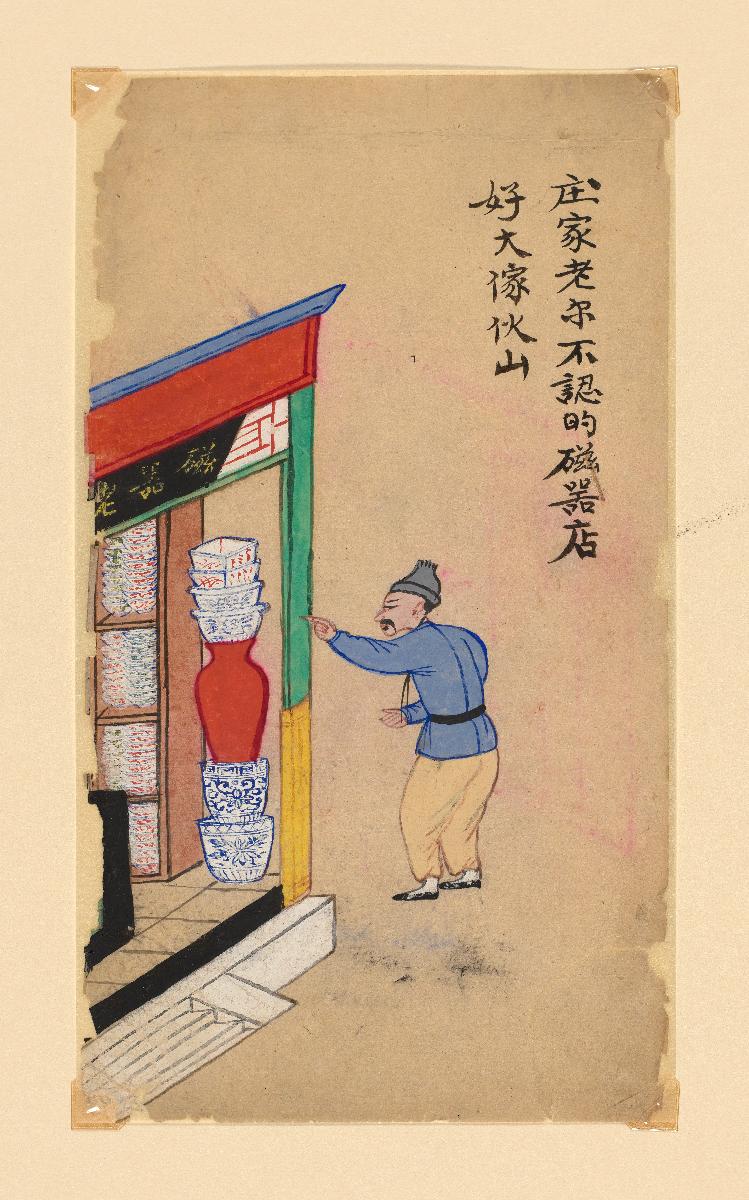 庄家老尔不認的磁器店
好大傢伙山
磁器